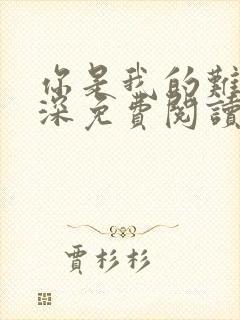 你是我的難
深免費閱讀
賈杉杉